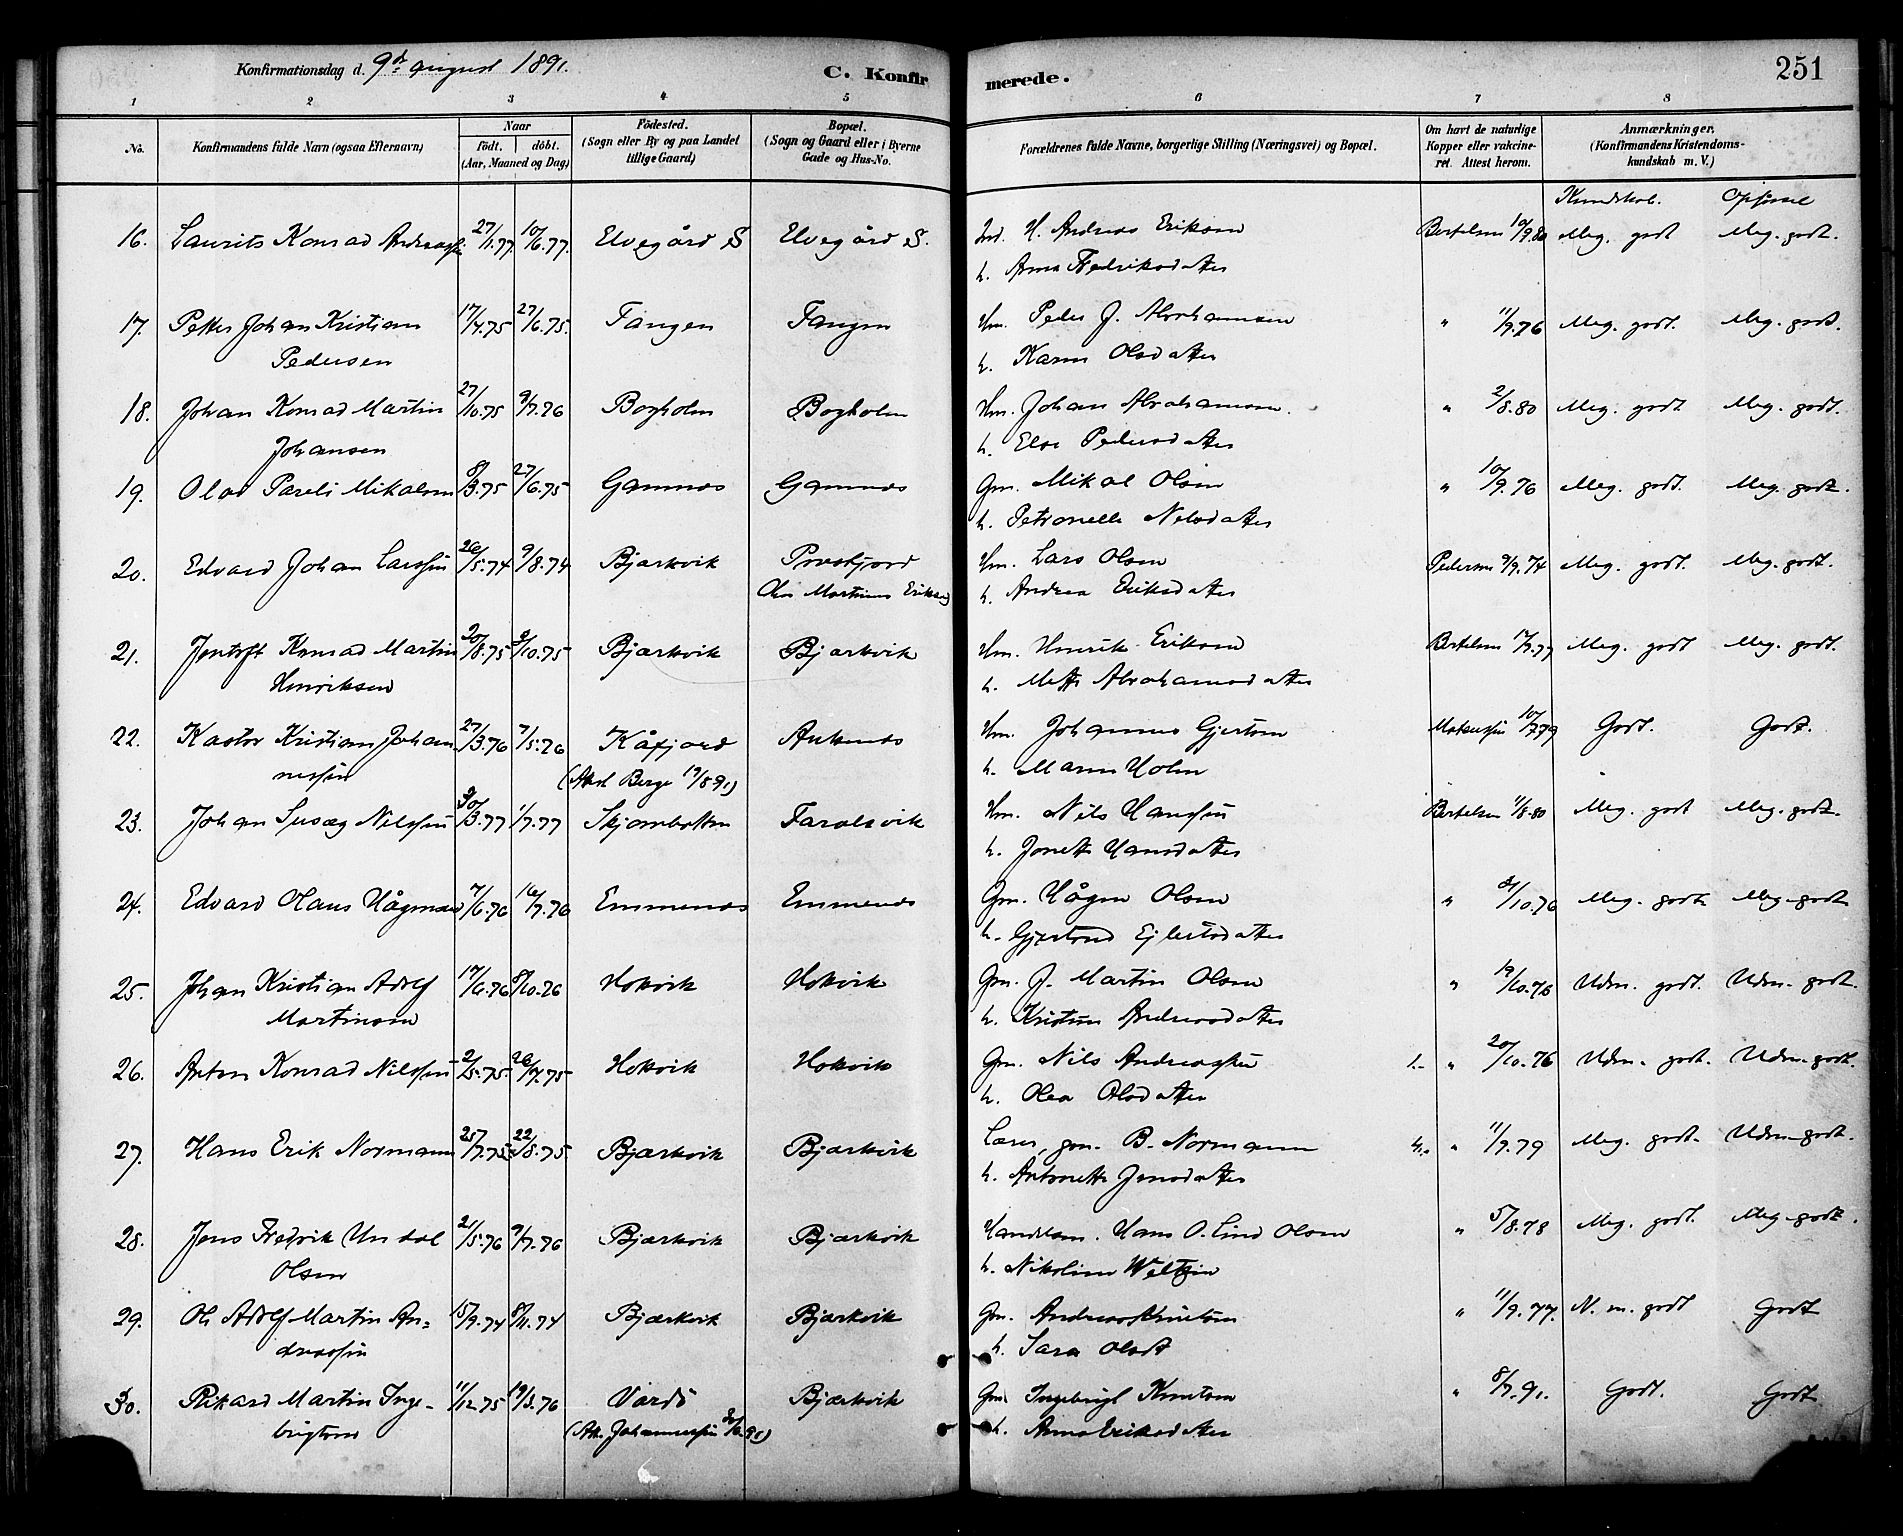 Konfirmationsdag d. 9de august 1891. C. Konfirmerede. 251
1 2 3 4 5 6 7 8
No. Konfirmandens fulde Navn (ogsaa Efternavn) Naar födt. döbt. (Aar, Maaned og Dag) Födested. (Sogn eller By og paa Landet tillige Gaard) Bopæl. (Sogn og Gaard eller i Byerne Gade og Hus-No. Forældrenes fulde Navne, borgerlige Stilling (Næringsvei) og Bopæl. Om havt de naturlige Kopper eller vakcineret. Attest herom. Anmærkninger. (Konfirmandens Kristendomskundskab m. V.)
Kundskab. Opførsel
16. Laurits Konrad Andreasson 27/1.77. 10/6.77. Elvegård S Elvegård S. Ind. H. Andreas Eriksen Bertelsen 10/9.80 Meg. godt Meg. godt.
h. Anna Fredriksdatter
17. Petter Johan Kristian 17/4.75 27/6.75. Tangen Tangen Hm. Peder J. Abrahamsen " 11/9.76 Meg. godt. Meg. godt.
Pedersen h. Karen Olsdatter
18. Johan Konrad Martin 27/10.75 9/7.76 Bogholm Bogholm Hm. Johan Abrahamsen. " 2/8.80 Meg. godt Meg. godt.
Johansen h. Else Pedersdatter
19. Olav Pareli Mikalsen 8/3.75 27/6.75 Gamnes Gamnes Gm. Mikal Olsen " 10/9.76 Meg. godt. Meg. godt.
h. Petronelle Nilsdatter
20. Edvard Johan Larssen 26/5.74 9/8.74 Bjerkvik Prestfjord Hm. Lars Olsen Pedersen 9/9.74 Meg. godt. Meg. godt.
Martinus Eriksen h. Andrea Eriksdatter
21. Jentoft Konrad Martin 20/8.75 /10.75 Bjerkvik Bjerkvik Hm. Henrik Eriksen Bertelsen 17/7.77 Meg. godt Meg. godt.
Henriksen h. Mette Abrahamsdatter
22. Kastor Kristian Johan- 27/3.76 7/5.76 Kåfjord Ankenes Hm. Johannes Gjertsen 10/7.79 Godt. Godt.
nessen (Att. Berge 19/8 91) h. Maren Holm
23. Johan Susæg Nilssen 30/3.77 1/7.77 Skjombotten Taraldsvik Hm. Nils Hanssen Bertelsen 11/8.80 Meg. godt Meg. godt.
h. Jonette Hansdatter
24. Edvard Olaus Hågensen 7/6.76 16/7.76 Emmenes Emmenes Gm. Hågen Olsen " /10.76 Meg. godt Meg. godt
h. Gjertrud Ejlertsdatter
25. Johan Kristian Adolf 17/6.76 8/10.76 Hokvik Hokvik Gm. J. Martin Olsen " 19/10.76 Udm. godt. Udm. godt.
Martinsen h. Kristine Andreasdatter
26. Anton Konrad Nilssen 2/5.75. 26/7.75 Hokvik Hokvik Gm. Nils Andreassen 1. " 20/10.76 Udm. godt. Udm. godt.
h. Olea Olsdatter
27. Hans Erik Normann 25/7.75 22/8.75. Bjærkvik Bjærkvik Lærer, gm. B. Normann 4. " 11/7.79 Meg. godt. Udm. godt.
h. Antonette Jensdatter
28. Jens Fredrik Undal 21/5.76 9/7.76 Bjærkvik Bjærkvik Handelsm. Hans O. Lind Olsen " 5/8.78 Meg. godt. Meg godt.
Olsen h. Nikoline Weltzin
29. Ole Adolf Martin An= 15/9.74 8/11.74 Bjærkvik Bjærkvik Gm. Andreas Knutsen " 11/9.77. N. m. godt Godt
dreassen h. Sara Olsdt
30. Rikard Martin Inge- 11/12.75 19/3.76 Vardö Bjærkvik Gm. Ingebrigt Knutsen " 8/7.91. Godt. Godt
brigtsen (Att. Johannessen /6.91) h. Anna Eriksdatter